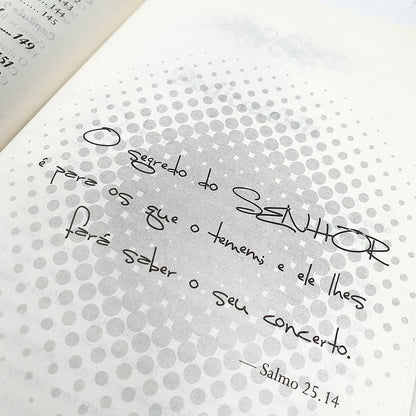 144
145
149
151
O segredo do SENHOR
é para os que o temem; e ele lhes
fará saber o seu concerto.
— Salmo 25.14